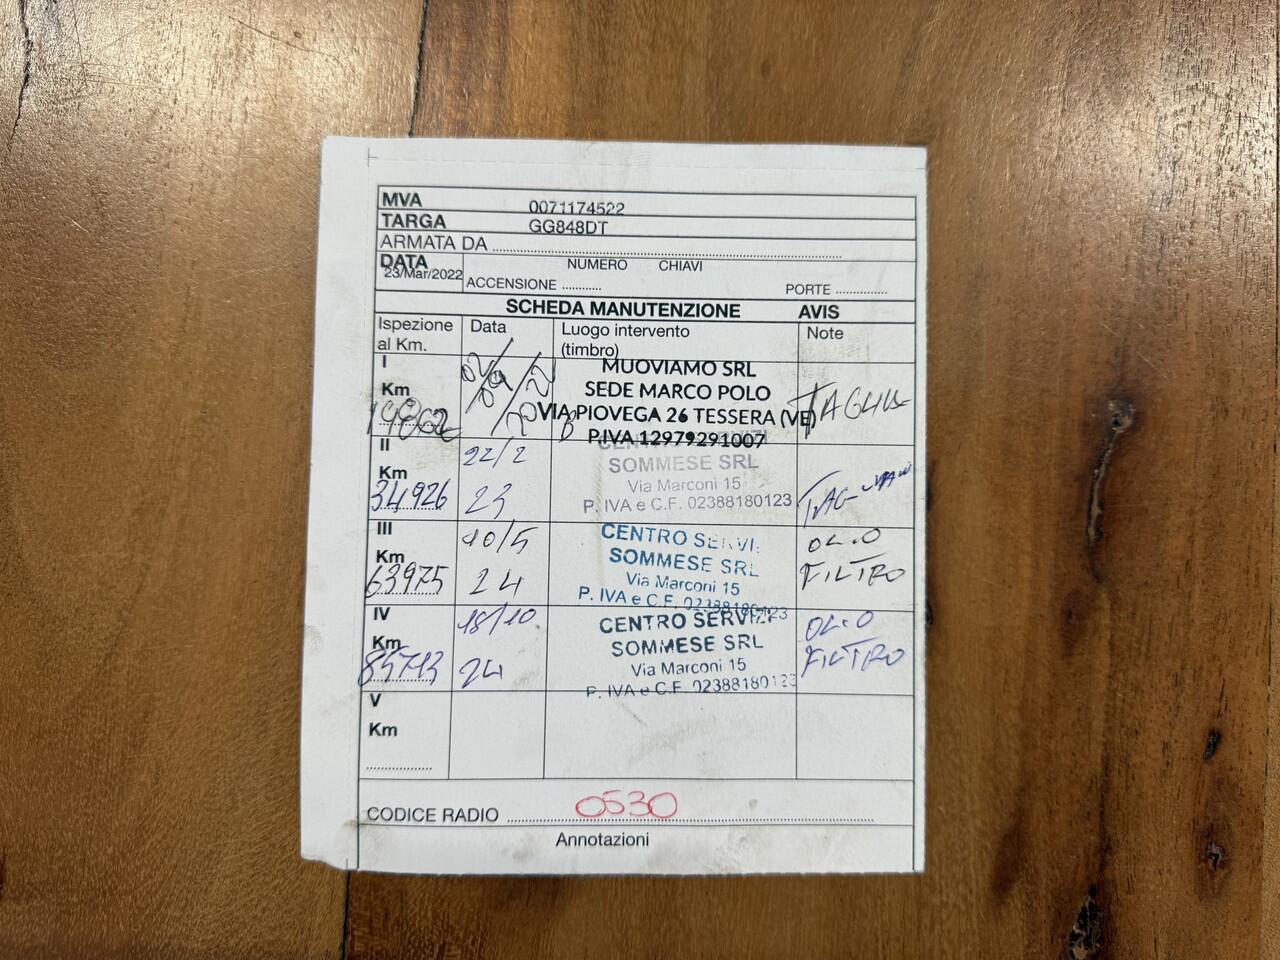 MVA 0071174522
TARGA GG848DT
ARMATA DA ........................
DATA 23/Mar/2022
NUMERO CHIAVI
ACCENSIONE ............ PORTE ................
SCHEDA MANUTENZIONE AVIS
Ispezione al Km. Data Luogo intervento (timbro) Note
I
Km
02/09/2022
MUOVIAMO SRL
SEDE MARCO POLO
VIA PIOVEGA 26 TESSERA (VE)
P.IVA 12979291007
II
Km 34926
22/2
23
SOMMESE SRL
Via Marconi 15
P. IVA e C.F. 02388180123
III
Km 63975
10/5
24
CENTRO SERVI
SOMMESE SRL
Via Marconi 15
P. IVA e C.F. 02388180123
OLIO
FILTRO
IV
Km 85713
18/10
24
CENTRO SERVIZI
SOMMESE SRL
Via Marconi 15
P. IVA e C.F. 02388180123
OLIO
FILTRO
V
Km
CODICE RADIO 0530
Annotazioni